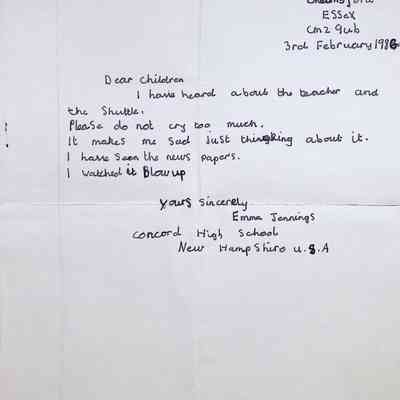 Essex
CM2 9UB
3rd February 1986
Dear Children
I have heard about the teacher and
the Shuttle.
Please do not cry too much.
It makes me sad just thinking about it.
I have seen the news papers.
I watched it Blow up
Yours Sincerely
Emma Jennings
Concord High School
New Hampshire U.S.A